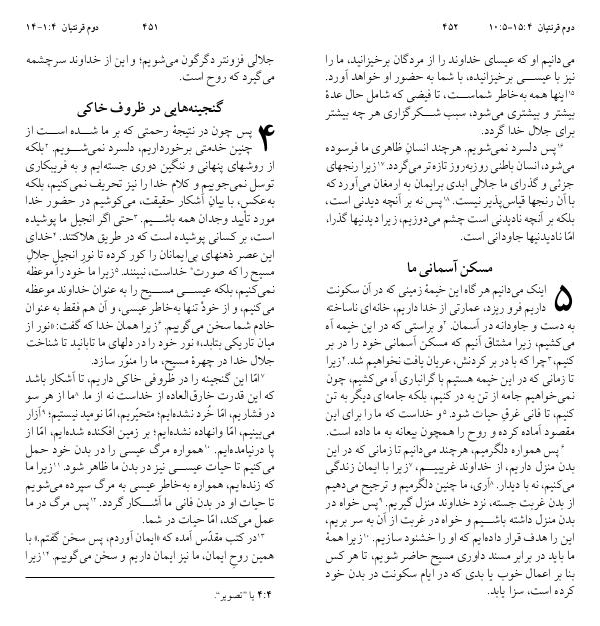 دوم قرنتیان ۴:‏۱-۱۴
۴۵۱
جلالی فزونتر دگرگون می‌شویم؛ و این از خداوند سرچشمه
می‌گیرد که روح است.
گنجینه‌هایی در ظروف خاکی
۴ پس چون در نتیجهٔ رحمتی که بر ما شده است از
چنین خدمتی برخورداریم، دلسرد نمی‌شویم. ۲بلکه
از روشهای پنهانی و ننگین دوری جسته‌ایم و به فریبکاری
توسل نمی‌جوییم و کلام خدا را نیز تحریف نمی‌کنیم، بلکه
به‌عکس، با بیان آشکار حقیقت، می‌کوشیم در حضور خدا
مورد تأیید وجدان همه باشیم. ۳حتی اگر انجیل ما پوشیده
است، بر کسانی پوشیده است که در طریق هلاکتند. ۴خدای
این عصر ذهنهای بی‌ایمانان را کور کرده تا نور انجیل جلال
مسیح را که صورت* خداست، نبینند. ۵زیرا ما خود را موعظه
نمی‌کنیم، بلکه عیسی مسیح را به عنوان خداوند موعظه
می‌کنیم، و از خودْ تنها به‌خاطر عیسی، و آن هم فقط به عنوان
خادم شما سخن می‌گوییم. ۶زیرا همان خدا که گفت: «نور از
میان تاریکی بتابد،» نور خود را در دلهای ما تابانید تا شناخت
جلال خدا در چهرهٔ مسیح، ما را منوّر سازد.
۷امّا این گنجینه را در ظروفی خاکی داریم، تا آشکار باشد
که این قدرت خارق‌العاده از خداست نه از ما. ۸ما از هر سو
در فشاریم، امّا خُرد نشده‌ایم؛ متحیّریم، امّا نومید نیستیم؛ ۹آزار
می‌بینیم، امّا وانهاده نشده‌ایم؛ بر زمین افکنده شده‌ایم، امّا از
پا درنیامده‌ایم. ۱۰همواره مرگ عیسی را در بدن خود حمل
می‌کنیم تا حیات عیسی نیز در بدن ما ظاهر شود. ۱۱زیرا ما
که زنده‌ایم، همواره به‌خاطر عیسی به مرگ سپرده می‌شویم
تا حیات او در بدن فانی ما آشکار گردد. ۱۲پس مرگ در ما
عمل می‌کند، امّا حیات در شما.
۱۳در کتب مقدّس آمده که «ایمان آوردم، پس سخن گفتم.» با
همین روح ایمان، ما نیز ایمان داریم و سخن می‌گوییم. ۱۴زیرا
۴:‏۴ یا "تصویر".
۴۵۲
دوم قرنتیان ۴:‏۱۵-۵:‏۱۰
می‌دانیم او که عیسای خداوند را از مردگان برخیزانید، ما را
نیز با عیسی برخیزانیده، با شما به حضور او خواهد آورد.
۱۵اینها همه به‌خاطر شماست، تا فیضی که شامل حال عدهٔ
بیشتر و بیشتری می‌شود، سبب شکرگزاری هر چه بیشتر
برای جلال خدا گردد.
۱۶پس دلسرد نمی‌شویم. هرچند انسانِ ظاهری ما فرسوده
می‌شود، انسان باطنی روزبه‌روز تازه‌تر می‌گردد. ۱۷زیرا رنجهای
جزئی و گذرای ما جلالی ابدی برایمان به ارمغان می‌آورد که
با آن رنجها قیاس‌پذیر نیست. ۱۸پس نه بر آنچه دیدنی است،
بلکه بر آنچه نادیدنی است چشم می‌دوزیم، زیرا دیدنیها گذرا،
امّا نادیدنیها جاودانی است.
مسکن آسمانی ما
۵ اینک می‌دانیم هر گاه این خیمهٔ زمینی که در آن سکونت
داریم فرو ریزد، عمارتی از خدا داریم، خانه‌ای ناساخته
به دست و جاودانه در آسمان. ۲و براستی که در این خیمه آه
می‌کشیم، زیرا مشتاق آنیم که مسکن آسمانی خود را در بر
کنیم، ۳چرا که با در بر کردنش، عریان یافت نخواهیم شد. ۴زیرا
تا زمانی که در این خیمه هستیم با گرانباری آه می‌کشیم، چون
نمی‌خواهیم جامه از تن به در کنیم، بلکه جامه‌ای دیگر به تن
کنیم، تا فانی غرقِ حیات شود. ۵و خداست که ما را برای این
مقصود آماده کرده و روح را همچون بیعانه به ما داده است.
۶پس همواره دلگرمیم، هرچند می‌دانیم تا زمانی که در این
بدن منزل داریم، از خداوند غریبیم، ۷زیرا با ایمان زندگی
می‌کنیم، نه با دیدار. ۸آری، ما چنین دلگرمیم و ترجیح می‌دهیم
از بدن غربت جسته، نزد خداوند منزل گیریم. ۹پس خواه در
بدن منزل داشته باشیم و خواه در غربت از آن به سر بریم،
این را هدف قرار داده‌ایم که او را خشنود سازیم. ۱۰زیرا همهٔ
ما باید در برابر مسند داوری مسیح حاضر شویم، تا هر کس
بنا بر اعمال خوب یا بدی که در ایام سکونت در بدن خود
کرده است، سزا یابد.